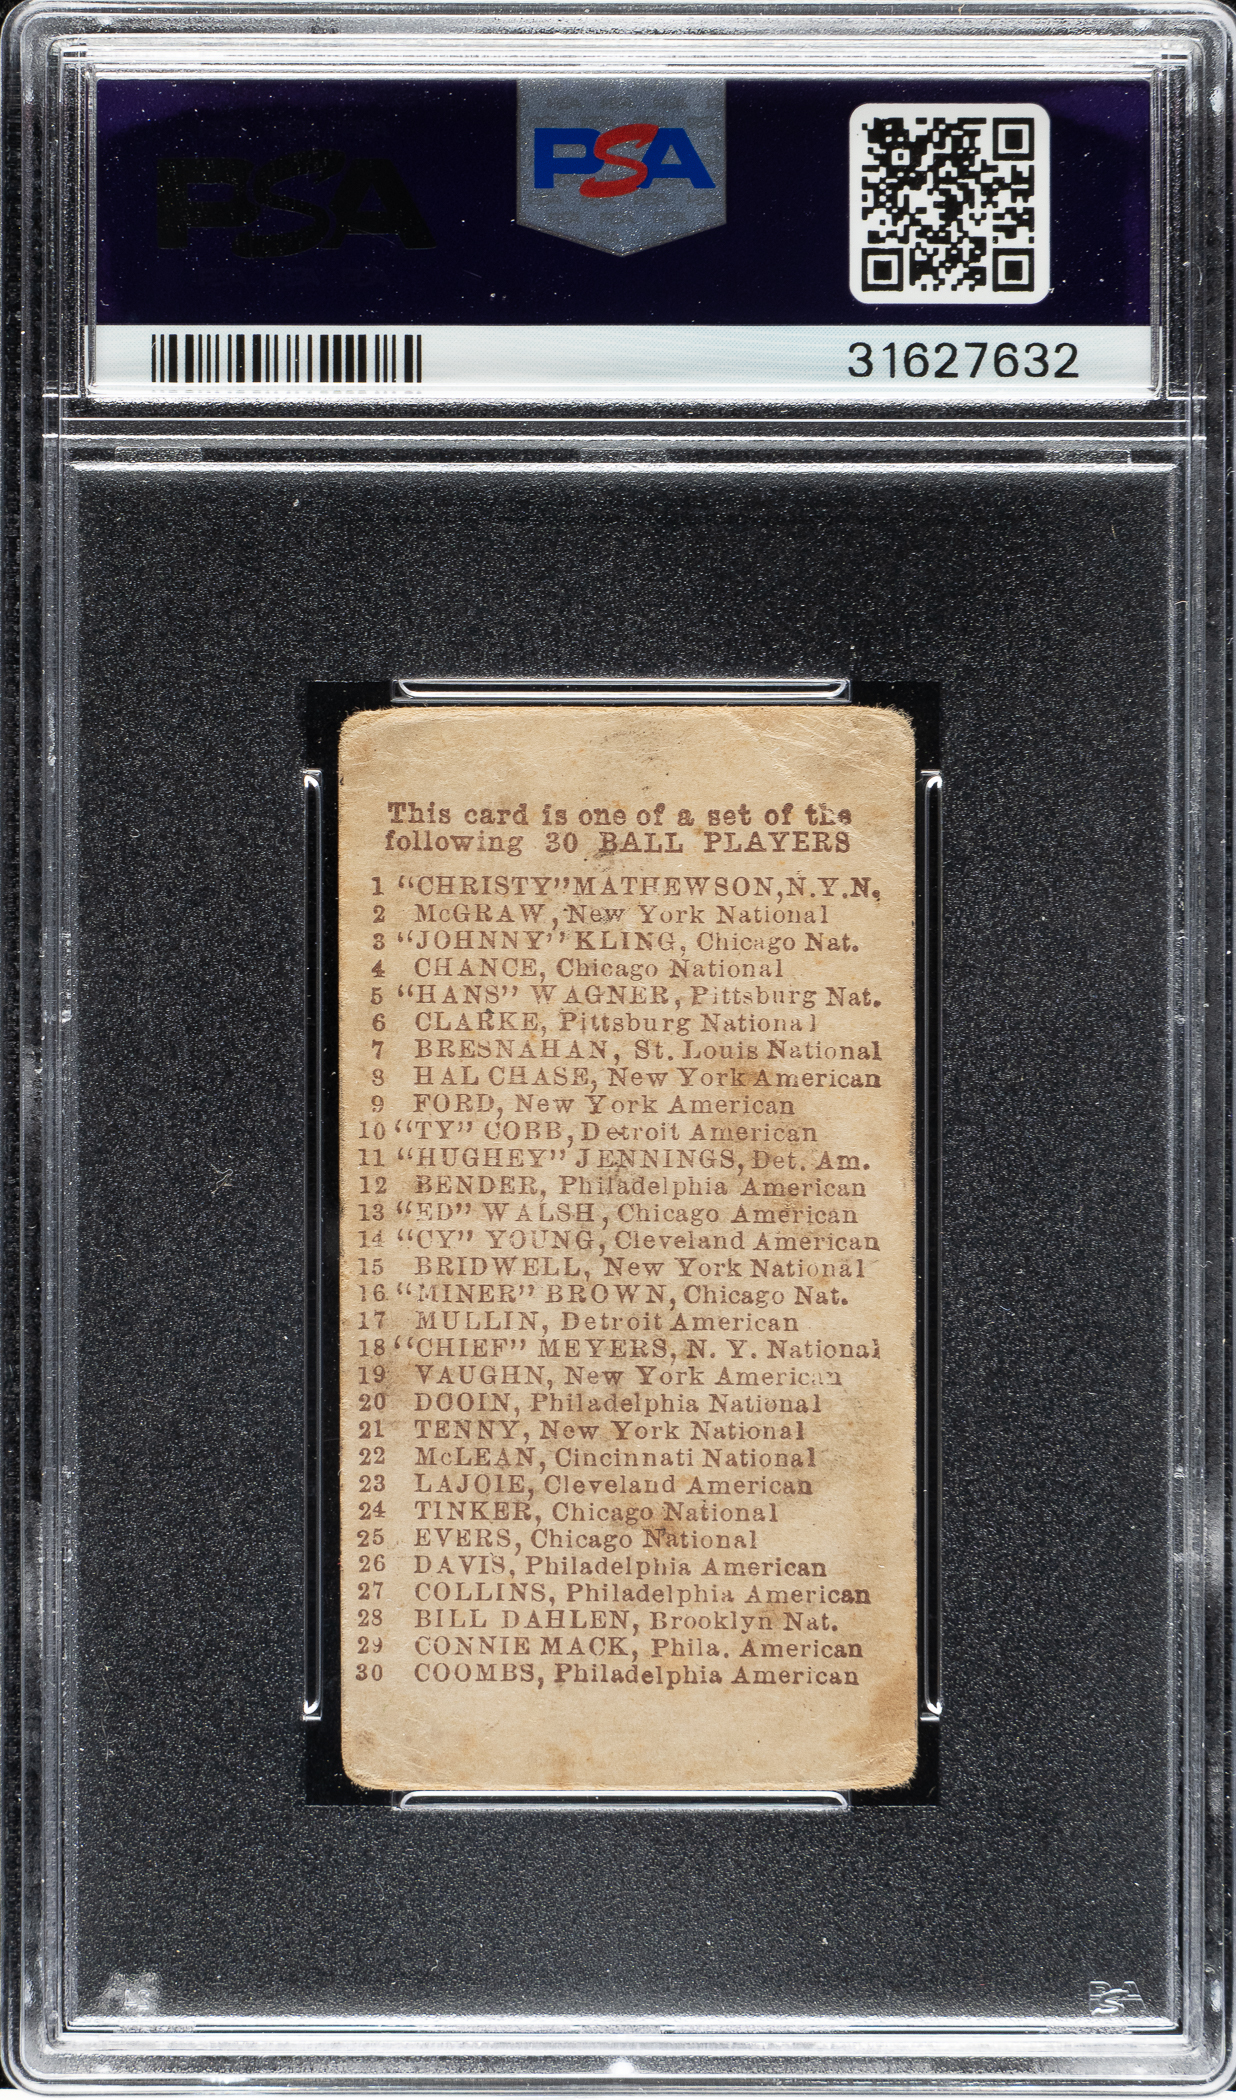 PSA
PSA
31627632
This card is one of a set of the
following 30 BALL PLAYERS
1 "CHRISTY" MATHEWSON, N.Y.N.
2 McGRAW, New York National
3 "JOHNNY" KLING, Chicago Nat.
4 CHANCE, Chicago National
5 "HANS" WAGNER, Pittsburg Nat.
6 CLARKE, Pittsburg National
7 BRESNAHAN, St. Louis National
8 HAL CHASE, New York American
9 FORD, New York American
10 "TY" COBB, Detroit American
11 "HUGHEY" JENNINGS, Det. Am.
12 BENDER, Philadelphia American
13 "ED" WALSH, Chicago American
14 "CY" YOUNG, Cleveland American
15 BRIDWELL, New York National
16 "MINER" BROWN, Chicago Nat.
17 MULLIN, Detroit American
18 "CHIEF" MEYERS, N. Y. National
19 VAUGHN, New York American
20 DOOIN, Philadelphia National
21 TENNY, New York National
22 McLEAN, Cincinnati National
23 LAJOIE, Cleveland American
24 TINKER, Chicago National
25 EVERS, Chicago National
26 DAVIS, Philadelphia American
27 COLLINS, Philadelphia American
28 BILL DAHLEN, Brooklyn Nat.
29 CONNIE MACK, Phila. American
30 COOMBS, Philadelphia American
PSA